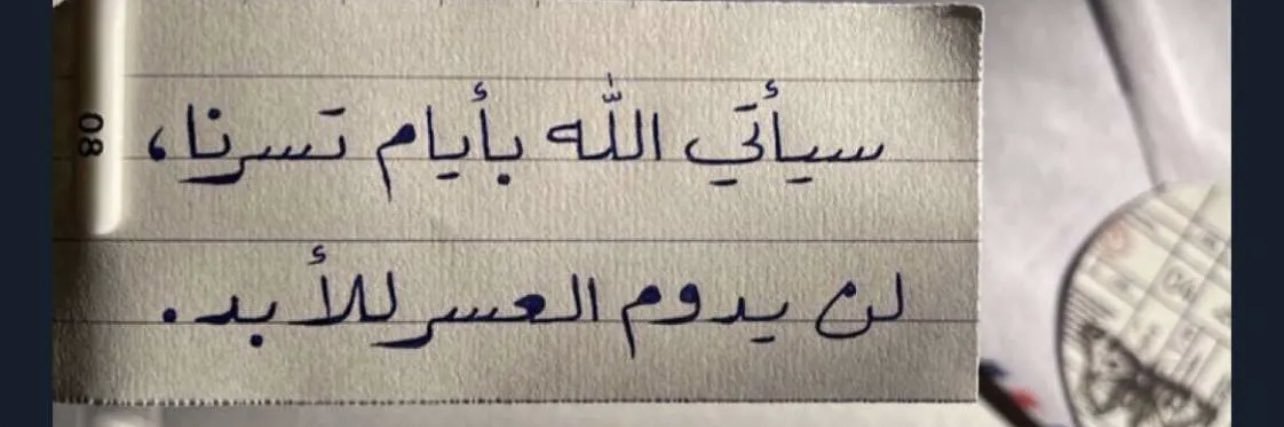 سيأتي الله بأيام تسرنا،
لن يدوم العسر للأبد.
08
04